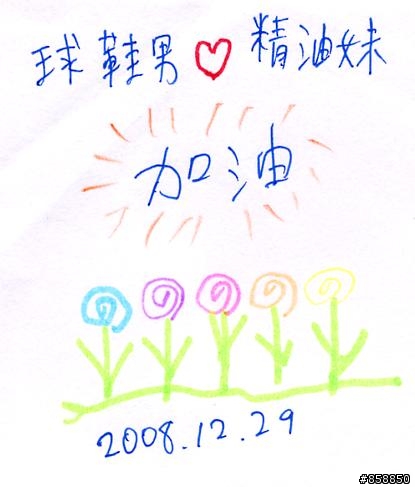 球鞋男♡精油妹
加油
2008.12.29
#858850